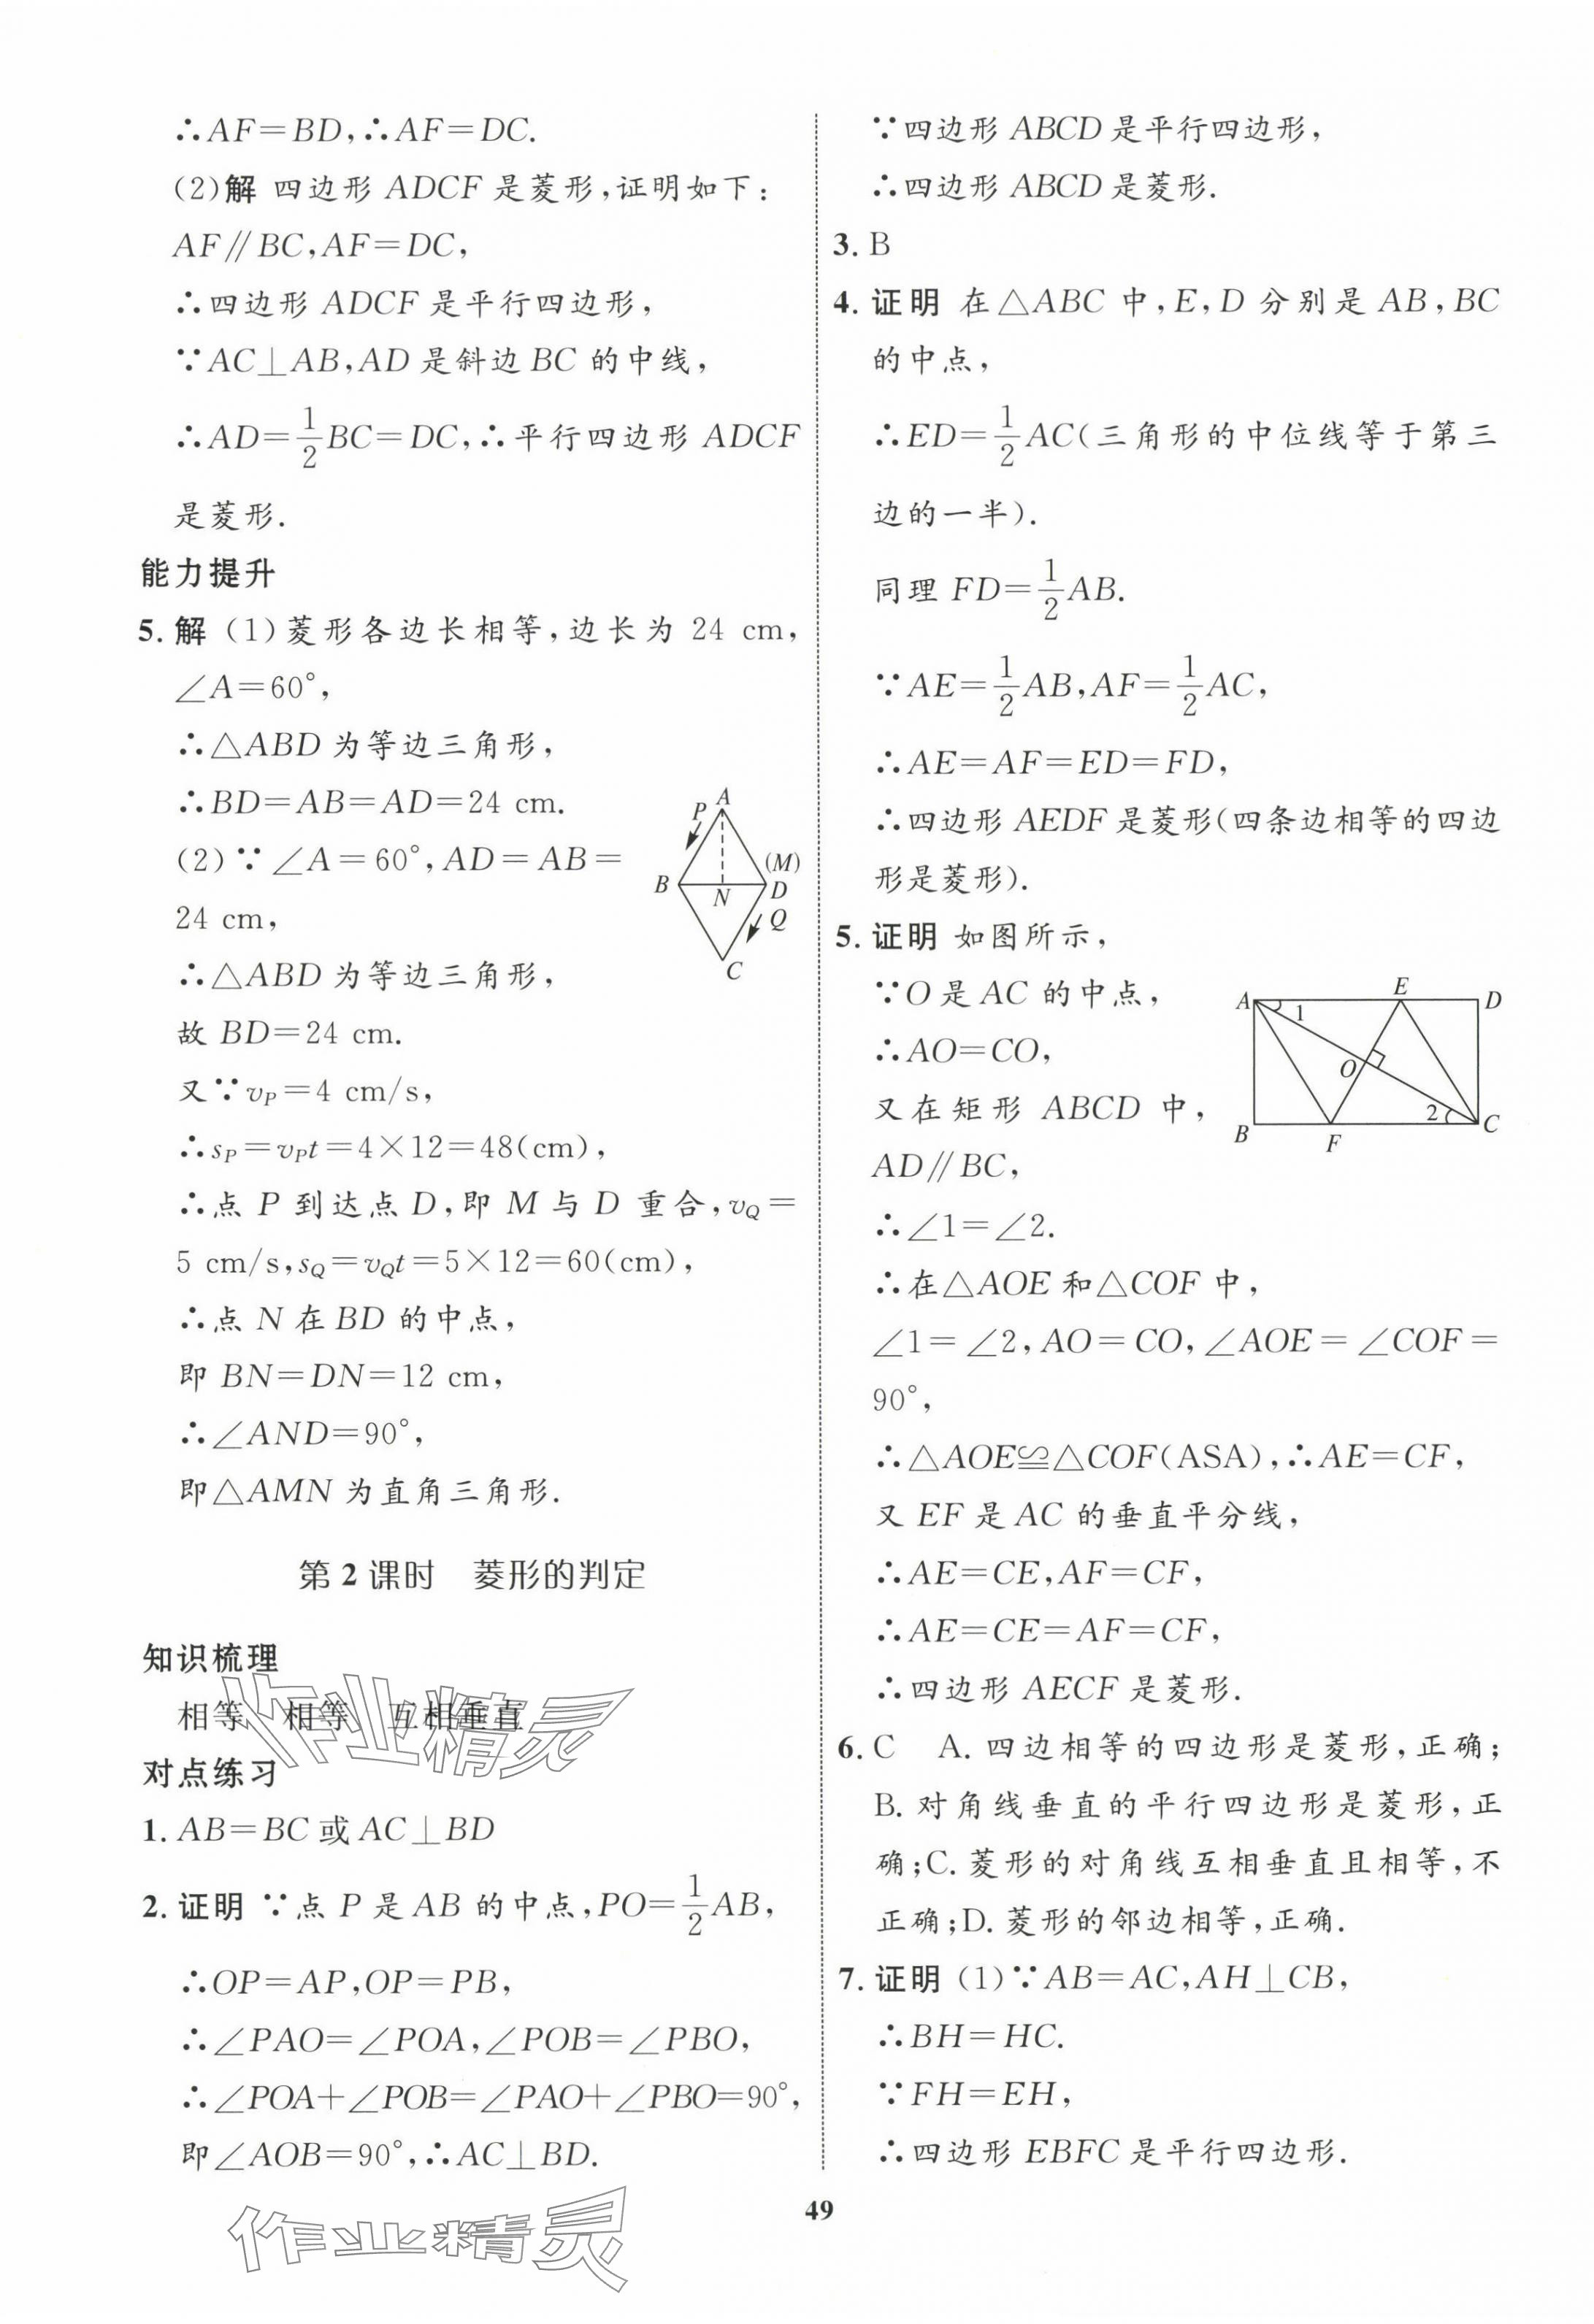 ∴AF=BD,∴AF=DC.
(2)解 四边形 ADCF 是菱形,证明如下:
AF∥BC,AF=DC,
∴四边形 ADCF 是平行四边形,
∵AC⊥AB,AD 是斜边 BC 的中线,
∴AD=1/2BC=DC,∴平行四边形 ADCF
是菱形.
能力提升
5.解 (1)菱形各边长相等,边长为 24 cm,
∠A=60°,
∴△ABD 为等边三角形,
∴BD=AB=AD=24 cm.
(2)∵∠A=60°,AD=AB=
24 cm,
∴△ABD 为等边三角形,
故 BD=24 cm.
又∵vP=4 cm/s,
∴sP=vPt=4×12=48(cm),
∴点 P 到达点 D,即 M 与 D 重合,vQ=
5 cm/s,sQ=vQt=5×12=60(cm),
∴点 N 在 BD 的中点,
即 BN=DN=12 cm,
∴∠AND=90°,
即△AMN 为直角三角形.
A
P
(M)
B
N
D
Q
C
第 2 课时 菱形的判定
知识梳理
相等 相等 互相垂直
对点练习
1. AB=BC 或 AC⊥BD
2.证明 ∵点 P 是 AB 的中点,PO=1/2AB,
∴OP=AP,OP=PB,
∴∠PAO=∠POA,∠POB=∠PBO,
∴∠POA+∠POB=∠PAO+∠PBO=90°,
即∠AOB=90°,∴AC⊥BD.
∵四边形 ABCD 是平行四边形,
∴四边形 ABCD 是菱形.
3. B
4.证明 在△ABC 中,E,D 分别是 AB,BC
的中点,
∴ED=1/2AC(三角形的中位线等于第三
边的一半).
同理 FD=1/2AB.
∵AE=1/2AB,AF=1/2AC,
∴AE=AF=ED=FD,
∴四边形 AEDF 是菱形(四条边相等的四边
形是菱形).
5.证明 如图所示,
∵O 是 AC 的中点,
∴AO=CO,
又在矩形 ABCD 中,
AD∥BC,
∴∠1=∠2.
∴在△AOE 和△COF 中,
∠1=∠2,AO=CO,∠AOE=∠COF=
90°,
∴△AOE≌△COF(ASA),∴AE=CF,
又 EF 是 AC 的垂直平分线,
∴AE=CE,AF=CF,
∴AE=CE=AF=CF,
∴四边形 AECF 是菱形.
A
E
D
1
O
2
B
F
C
6. C A. 四边相等的四边形是菱形,正确;
B. 对角线垂直的平行四边形是菱形,正
确;C. 菱形的对角线互相垂直且相等,不
正确;D. 菱形的邻边相等,正确.
7.证明 (1)∵AB=AC,AH⊥CB,
∴BH=HC.
∵FH=EH,
∴四边形 EBFC 是平行四边形.
49
作业精灵
作业精灵